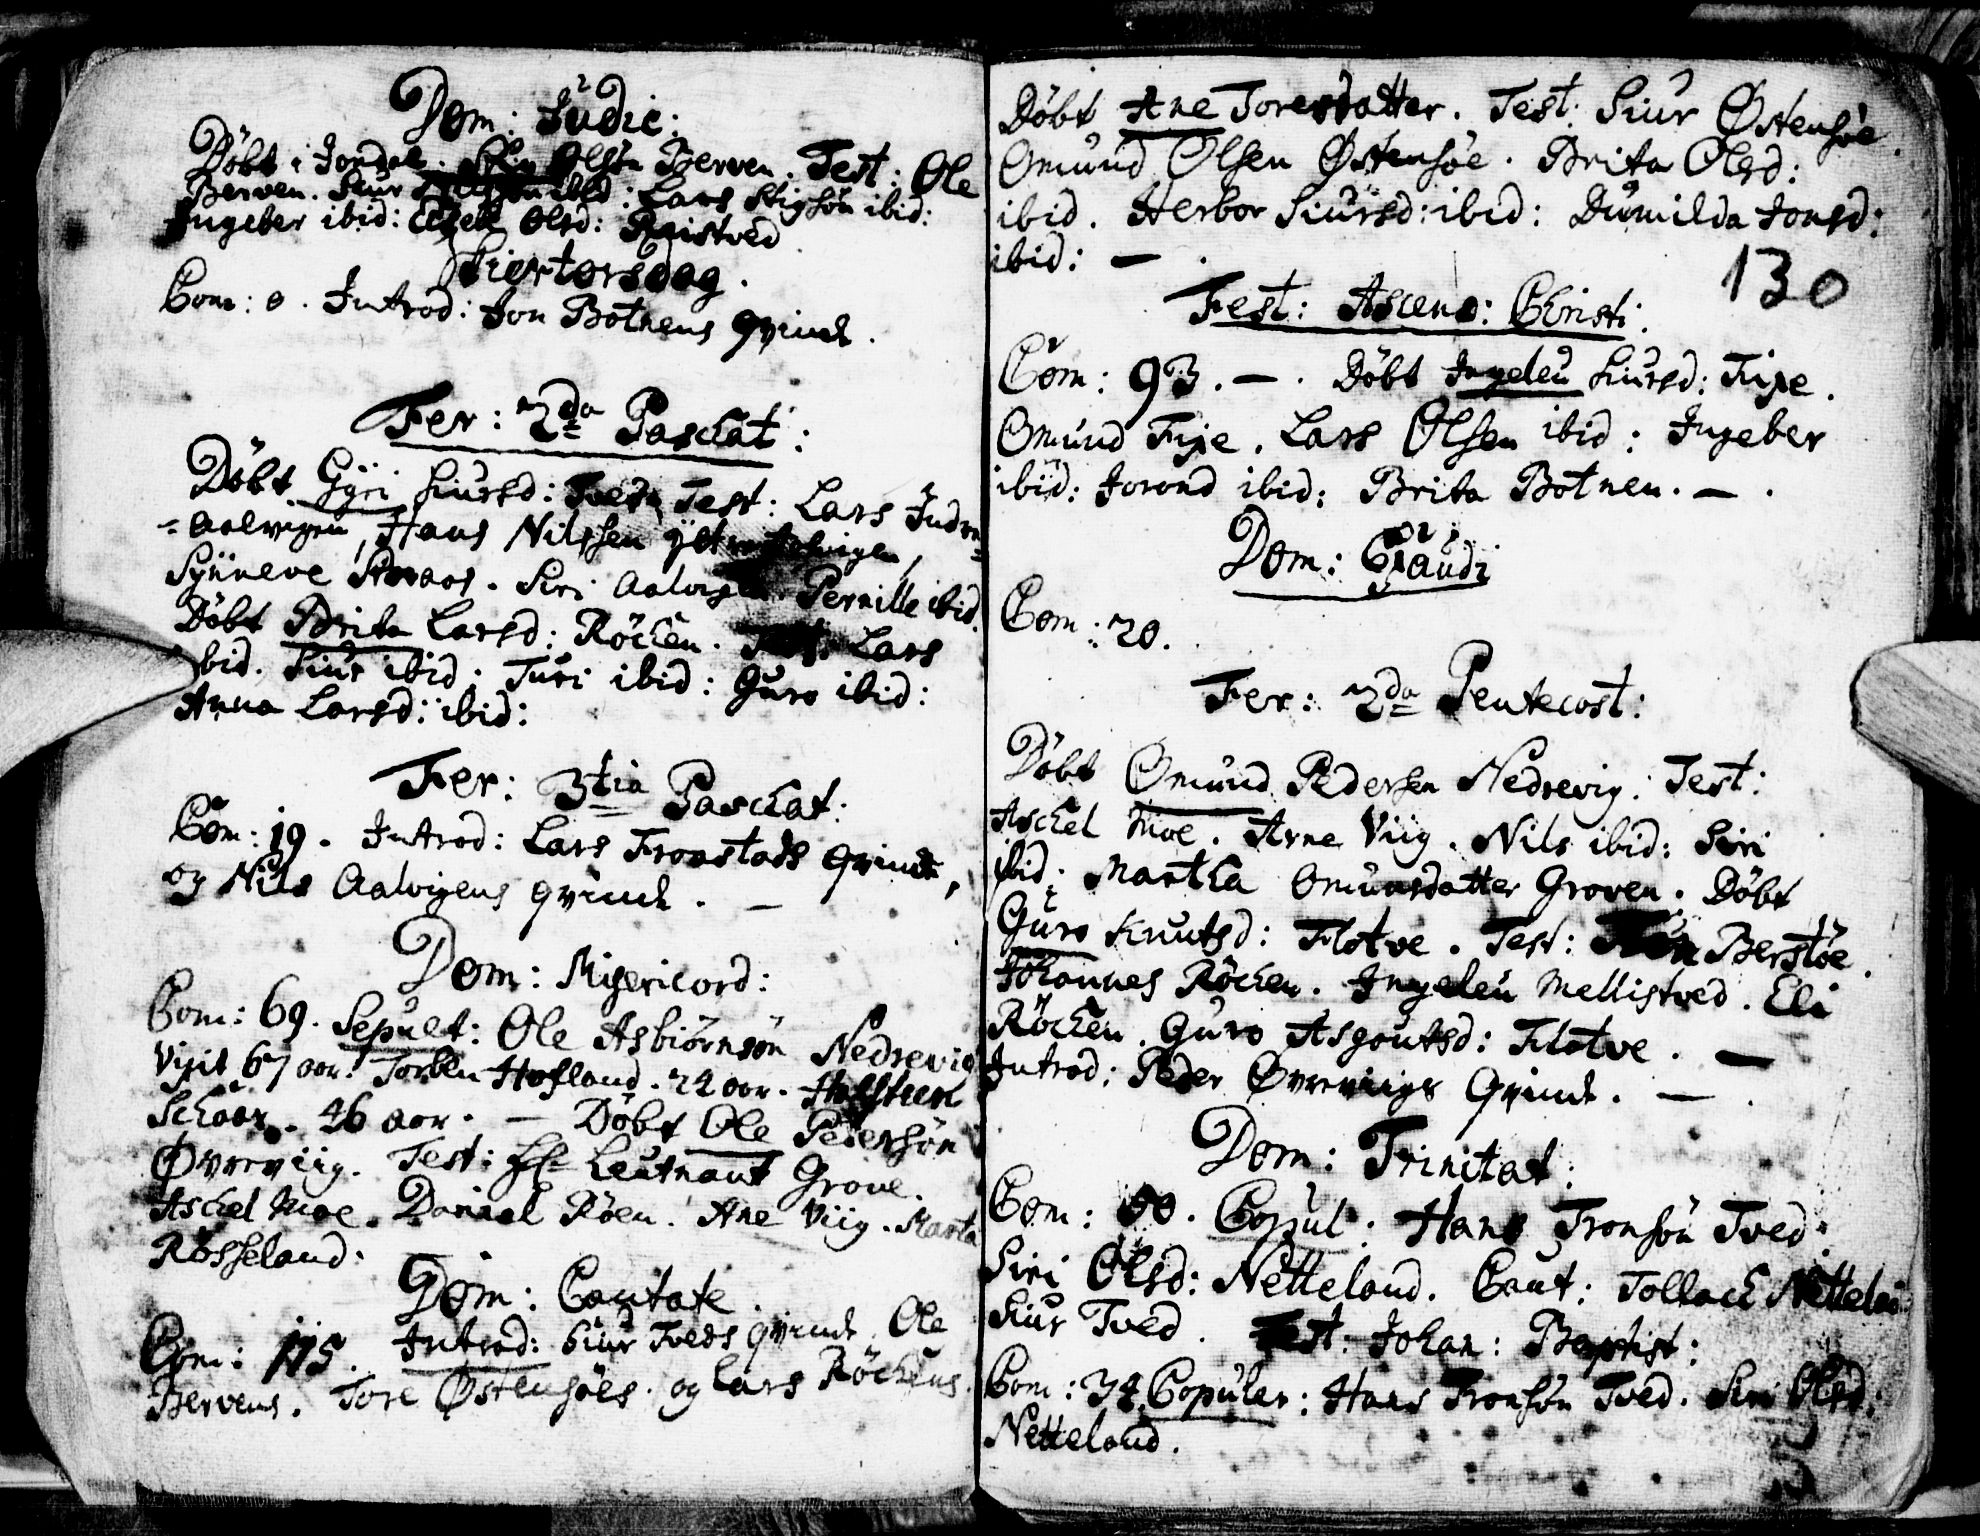 Dom: Judic:
Döbt i Jondal. Olsön Berven. Test: Ole
Berven. Siur ibid: Lars Stigsön ibid:
Ingeber ibid: Olsd:
Skiertorsdag.
Com: 0. Introd: Jon Botnens Qvinde.
Fer: 2da Paschat:
Döbt Gÿri Siursd: Tvedt Test: Lars Indre
=Aalvigen, Hans Nilssen ÿtre Aalvigen,
Sÿnneve. Siri Aalvigen. Pernille ibid.
Döbt Brita Larsd: Röchen. Test. Lars
ibid. Siur ibid: Turi ibid: Guro ibid:
Anna Larsd: ibid:
Fer: 3tia Paschat:
Com: 19. Introd: Lars Fronstads Qvinde,
og Nils Aalvigens qvinde. —
Dom: Misericord:
Com: 69. Sepult: Ole Asbiörnsön Nedrevig
Vixit 67 aar. Torben Hofland. 22 aar.
Schaar. 46 aar. — Döbt Ole Pedersön
Øvreviig. Test: Hr Leutnant Grove.
Aschel Moe. Daniel Röen. Ane Viig. Marta
Rösseland.
Dom: Cantate
Com: 115. Introd: Siur Tveds qvinde. Ole
Bervens. Tore Østensöes. og Lars Röchens.
Döbt Ane Toresdatter. Test: Siur Østensöe.
Omund Olsen Østensöe. Brita Olsd:
ibid. Herbor Siursd: ibid: Dumilda Jonsd:
ibid: —.
130
Fest: Ascens: Christi.
Com: 93. —. Döbt Ingeleu Siursd: Fixe.
Omund Fixe. Lars Olsen ibid: Ingeber
ibid: Jorond ibid: Brita Botnen. —.
Dom: Exaudi
Com: 20.
Fer: 2da Pentecost:
Döbt Omund Pedersen Nedrevig. Test:
Aschel Moe. Arne Viig. Nils ibid: Siri
ibid: Martha Omunsdatter Groven. Döbt
Guro Knutsd: Flotve. Test: Berstöe.
Johannes Röchen. Ingeleu Mellistved. Eli
Röchen. Guro Asgoutsd: Flotve. —
Introd: Peder Øvreviigs Qvinde. —.
Dom: Trinitat:
Com: 00. Copul: Hans Tronsön Tved.
Siri Olsd: Netteland. Caut: Tollach Nettelan:
Siur Tved. Fest: Johan: Baptist:
Com: 34. Copuler: Hans Tronsön Tved. Siri Olsd:
Netteland.